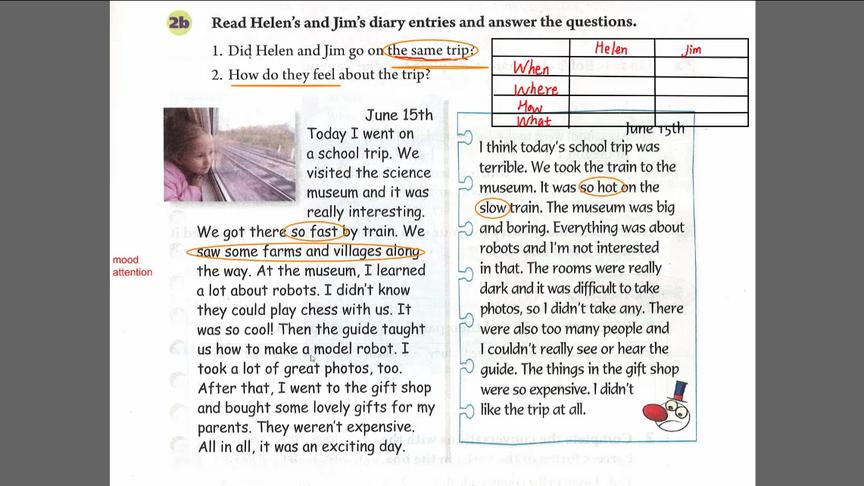 2b Read Helen's and Jim's diary entries and answer the questions.
1. Did Helen and Jim go on the same trip?
2. How do they feel about the trip?
Helen Jim
When
Where
How
What
mood
attention
June 15th
Today I went on
a school trip. We
visited the science
museum and it was
really interesting.
We got there so fast by train. We
saw some farms and villages along
the way. At the museum, I learned
a lot about robots. I didn't know
they could play chess with us. It
was so cool! Then the guide taught
us how to make a model robot. I
took a lot of great photos, too.
After that, I went to the gift shop
and bought some lovely gifts for my
parents. They weren't expensive.
All in all, it was an exciting day.
June 15th
I think today's school trip was
terrible. We took the train to the
museum. It was so hot on the
slow train. The museum was big
and boring. Everything was about
robots and I'm not interested
in that. The rooms were really
dark and it was difficult to take
photos, so I didn't take any. There
were also too many people and
I couldn't really see or hear the
guide. The things in the gift shop
were so expensive. I didn't
like the trip at all.